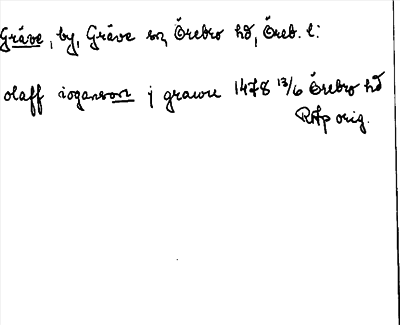 Gräve, by, Gräve sn, Örebro hd, Öreb. l:
olaff ioganson j grawe 1478 13/6 Örebro hd
RAp orig.